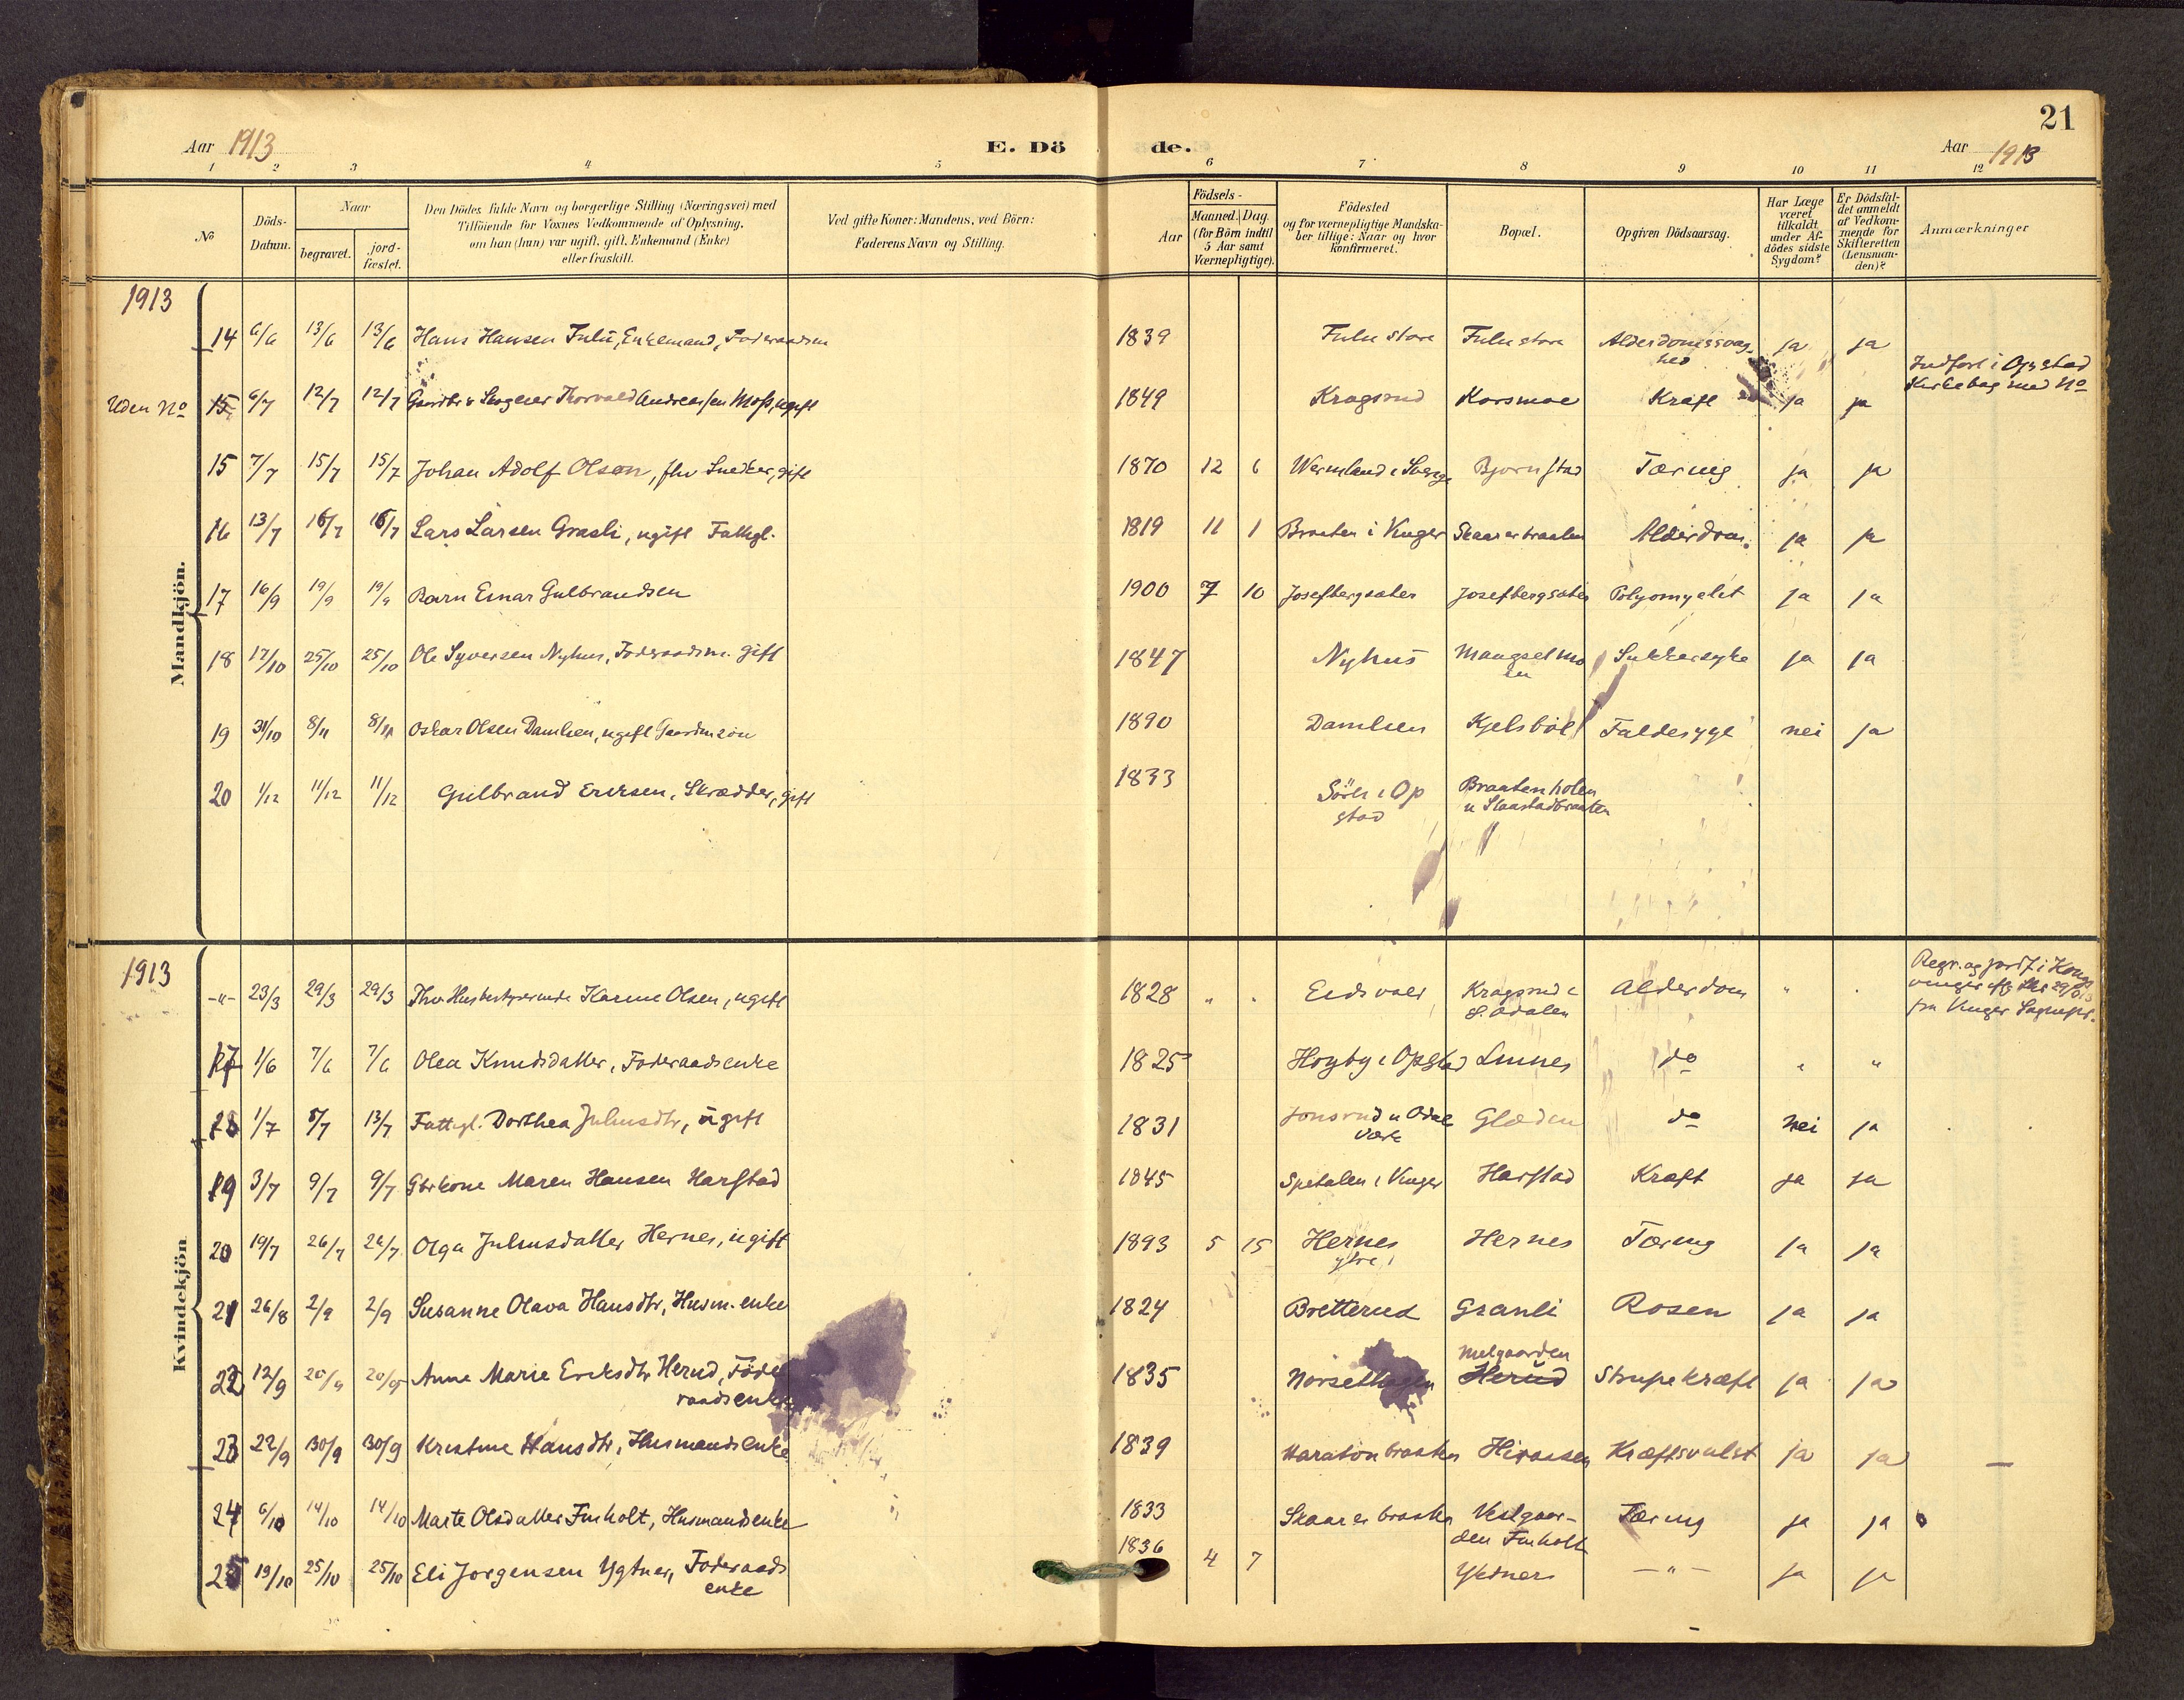 21
Aar 1913 E. Dö de. Aar 1913
1 2 3 4 5 6 7 8 9 10 11 12
No
Döds-Datum.
Naar
begravet.
jord-fæstet.
Den Dödes fulde Navn og borgerlige Stilling (Næringsvei) med
Tilföiende for Voxnes Vedkommende af Oplysning,
om han (hun) var ugift, gift, Enkemand (Enke)
eller fraskilt.
Ved gifte Koner: Mandens, ved Börn:
Faderens Navn og Stilling.
Födsels-
Aar
Maaned. Dag.
(for Börn indtil
5 Aar samt
Værnepligtige).
Födested
og for værnepligtige Mandska-
ber tillige: Naar og hvor
konfirmeret.
Bopæl.
Opgiven Dödsaarsag.
Har Læge
været
tilkaldt
under Af-
dödes sidste
Sygdom?
Er Dödsfal-
det anmeldt
af Vedkom-
mende for
Skifteretten
(Lensman-
den)?
Anmærkninger
1913
Mandkjön.
14 6/6 13/6 13/6 Hans Hansen Fulu, Enkemand, Foderaadsm 1839 Fulu store Fulu store Alderdomssvag-
hed ja ja
Uden No 15 6/7 12/7 12/7 Gaardbr & Skogeier Thorvald Andreassen Moss, ugift 1849 Kragsrud Korsmoe Kræft ja ja Indført i Opstad
Kirkebog med No
15 7/7 15/7 15/7 Johan Adolf Olson, fhv Snedker, gift 1870 12 6 Wermland i Sverge Bjørnstad Tæring ja ja
16 13/7 16/7 16/7 Lars Larsen Grasli, ugift Fattigl. 1819 11 1 Braaten i Vinger Skaarerbraaten Alderdom. ja ja
17 16/9 19/9 19/9 Barn Einar Gulbrandsen 1900 7 10 Josefbergsæter Josefbergsæter Polyomyelit ja ja
18 17/10 25/10 25/10 Ole Syversen Nyhus, Foderaadsm. gift 1847 Nyhus Mangselmo
en Sukkersyke ja ja
19 31/10 8/11 8/11 Oskar Olsen Damlien, ugift Gaardmsøn 1890 Damlien Kjelsböl Faldesyge nei ja
20 1/12 11/12 11/12 Gulbrand Eriksen, Skrædder, gift 1833 Sörli i Op
stad Braatenholen
u Slaastadbraaten
1913
Kvindekjön
-"- 23/3 29/3 29/3 Fhv Husbestyrerinde Karine Olsen, ugift 1828 " " Eidsvold Kragsrud i
S. Odalen Alderdom "
17 1/6 7/6 7/6 Olea Knudsdatter, Foderaadsenke 1825 Høyby i Opstad Linnes do " "
18 1/7 8/7 13/7 Fattigl. Dorthea Juliusdtr, ugift 1831 Jonsrud u Odal
Værk Glæden do nei ja
19 3/7 9/7 9/7 Gbrkone Maren Hansen Harstad 1845 Spetalen i Vinger Harstad Kræft ja ja
20 19/7 26/7 26/7 Olga Juliusdatter Hernes, ugift 1893 5 15 Hernes
ytre Hernes Tæring ja ja
21 26/8 2/9 2/9 Susanne Olava Hansdtr, Husm. enke 1824 Bretterud Granli Rosen ja ja
22 12/9 20/9 20/9 Anne Marie Eriksdtr Herud, Föde
raadsenke 1835 Norsethagen Melgaarden
Herud Strupekræft ja ja
23 22/9 30/9 30/9 Kristine Hansdtr, Husmandsenke 1839 Hiraasen Kræftsvulst ja ja —
24 6/10 14/10 14/10 Marte Olsdatter Finholt, Husmandsenke 1833 Skaarerbraaten Vestgaar-
den Finholt Tæring ja ja
25 19/10 25/10 25/10 Eli Jorgensen Ygtner, Foderaads
enke 1836 4 7 Ygtner —"— ja ja